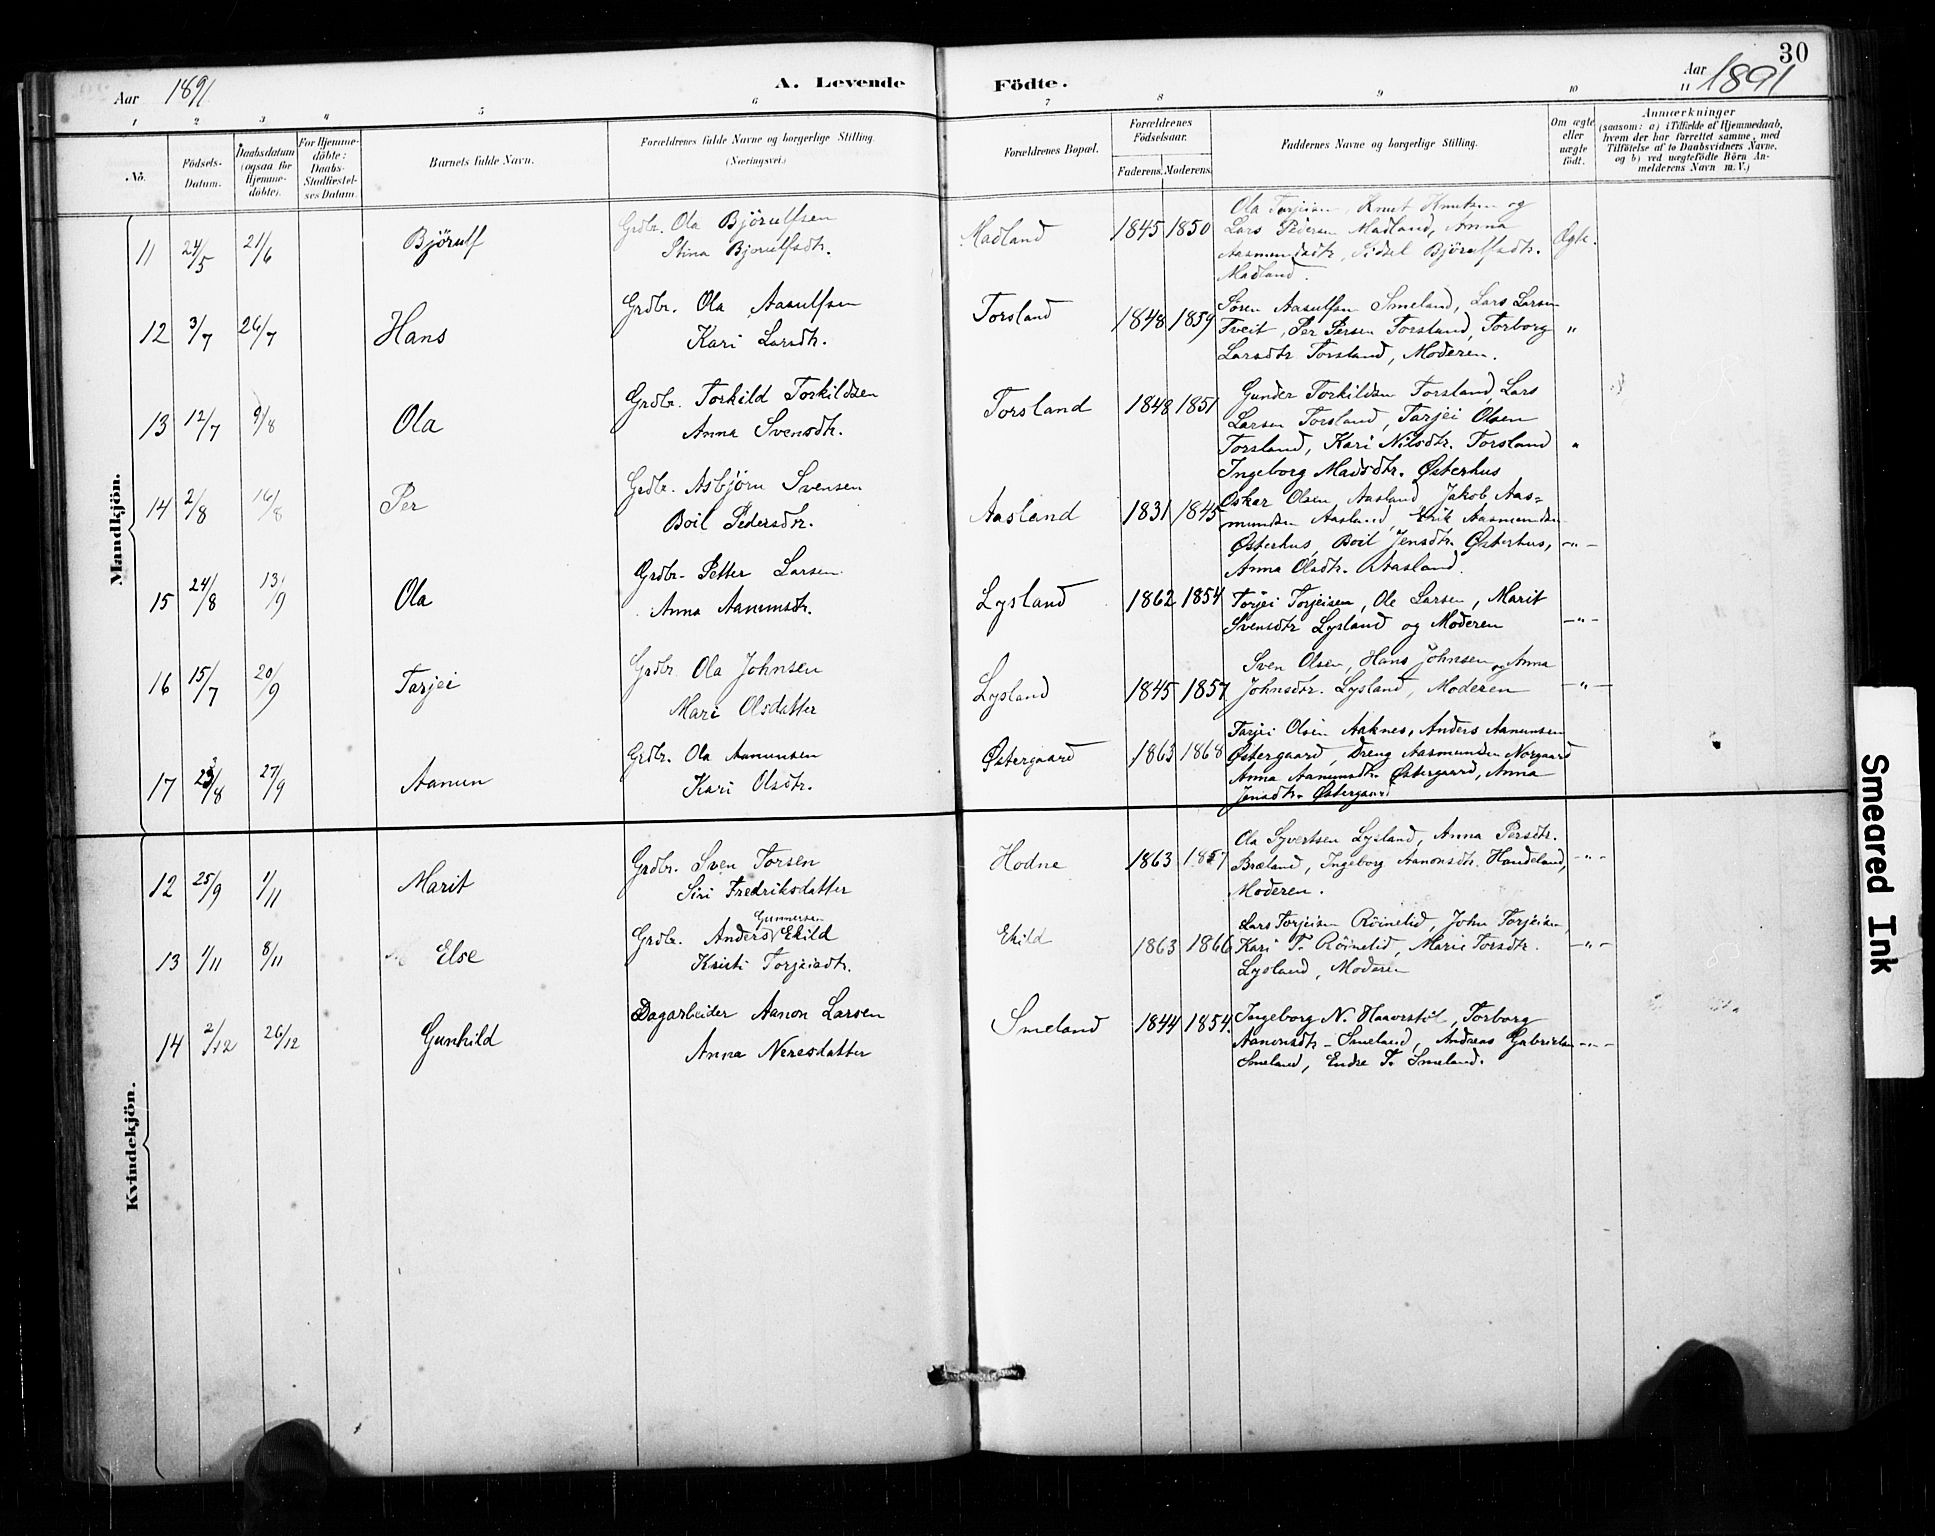 30
Aar 1891 A. Levende Födte. Aar 1891
1 2 3 4 5 6 7 8 9 10 11
No. Födsels-Datum. Daabsdatum (ogsaa for Hjemmedøbte). For Hjemmedöbte: Daabs-Stadfæstelses Datum. Barnets fulde Navn. Forældrenes fulde Navne og borgerlige Stilling. (Næringsvei.) Forældrenes Bopæl. Forældrenes Födselsaar. Faderens. Moderens. Faddernes Navne og borgerlige Stilling. Om ægte eller uægte födt. Anmærkninger (saasom: a) i Tilfælde af Hjemmedaab, hvem der har forrettet samme, med Tilföielse af to Daabsvidners Navne, og b) ved uægtefödte Börn Anmelderens Navn m.V.)
Mandkjön.
11 24/5 21/6 Björulf Grdbr. Ola Björulfsen
Stina Bjorulfsdtr. Madland 1845 1850 Ola Tarjeisen, Knut Knutsen og
Lars Pedersen Madland, Anna
Aasmundsdtr, Sidsel Björulfsdtr.
Madland. Ægte.
12 3/7 26/7 Hans Grdbr. Ola Aasulfsen
Kari Larsdtr. Torsland 1848 1859 Sören Aasulfsen Smeland, Lars Larsen
Tveit, Per Persen Torsland, Torborg
Larsdtr Torsland, Moderen. "
13 12/7 9/8 Ola Grdbr. Torkild Torkildsen
Anna Svensdtr. Torsland 1848 1851 Gunder Torkildsen Torsland, Lars
Larsen Torsland, Tarjei Olsen
Torsland, Kari Nilsdtr. Torsland
Ingeborg Madsdtr. Østerhus "
14 2/8 16/8 Per Grdbr. Asbjörn Svensen
Boil Pedersdtr. Aasland 1831 1845 Oskar Olsen, Aasland, Jakob Aas-
mundsen Aasland, Erik Aasmundsen
Østerhus, Boil Jensdtr. Østerhus,
Anna Olsdtr. Aasland. -"-
15 24/8 13/9 Ola Grdbr. Petter Larsen
Anna Aanunsdtr. Lysland 1862 1854 Torjei Torjeisen, Ole Larsen, Marit
Svensdtr Lysland og Moderen -"-
16 15/7 20/9 Tarjei Grdbr Ola Johnsen
Mari Olsdatter Lysland 1845 1857 Sven Olsen, Hans Johnsen og Anna
Johnsdtr. Lysland, Moderen -"-
17 23/8 27/9 Aanun Grdbr. Ola Aanunsen
Kari Olsdtr. Østergaard 1863 1868 Tarjei Olsen Aaknes, Anders Aanunsen
Østergaard, Dreng Aasmundsen Norgaard
Anna Aanunsdtr. Østergaard, Anna
Jensdtr. Østergaard
Kvindekjön.
12 25/9 1/11 Marit Grdbr. Sven Torsen
Siri Fredriksdatter Hodne 1863 1857 Ola Syvertsen Lysland, Anna Persdtr.
Bræland, Ingeborg Aanonsdtr. Handeland,
Moderen. -"-
13 1/11 8/11 Else Grdbr. Anders Gunnersen Ekild
Kristi Torjeisdtr. Ekild 1863 1866 Lars Torjeisen Röinelid, John Torjeisen,
Kari T. Röinelid, Marie Torsdtr.
Lysland, Moderen -"-
14 2/12 26/12 Gunhild Dagarbeider Aanon Larsen
Anna Neresdatter Smeland 1844 1854. Ingeborg N. Haaverstöl, Torborg
Aanonsdtr - Smeland, Andreas Gabrielsen
Smeland, Endre T. Smeland. -"-
Smeared Ink